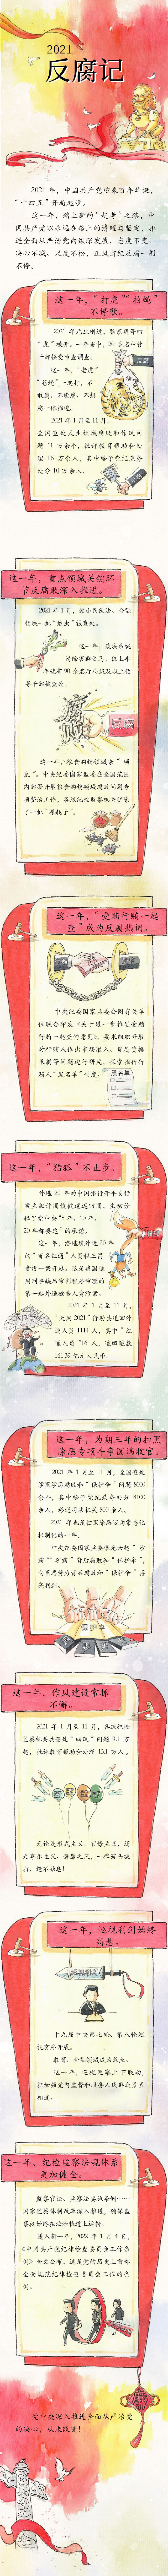 2021
反腐记
2021 年，中国共产党迎来百年华诞，
“十四五”开局起步。
这一年，踏上新的“赶考”之路，中
国共产党以永远在路上的清醒与坚定，推
进全面从严治党向纵深发展，态度不变、
决心不减、尺度不松，正风肃纪反腐一刻
不停。
这一年，“打虎”“拍蝇”
不停歇。
2021 年元旦刚过，骆家駹等四
“虎”被开。一年当中，20 多名中管
干部接受审查调查。
反腐
这一年，“老虎”
“苍蝇”一起打，不
敢腐、不能腐、不想
腐一体推进。
2021 年 1 月至 11 月，
全国查处民生领域腐败和作风问
题 11 万余个，批评教育帮助和处
理 16 万余人，其中给予党纪政务
处分 10 万余人。
这一年，重点领域关键环
节反腐败深入推进。
2021 年 1 月，赖小民伏法。金融
领域一批“蛀虫”被查处。
这一年，政法在线
清除害群之马。仅上半
年就有 90 余名厅局级及以上领
导干部被查处。
腐败
这一年，粮食购销领域除“硕
鼠”。中央纪委国家监委在全国范围
内部署开展粮食购销领域腐败问题专
项整治工作，各级纪检监察机关铲除
了一批“粮耗子”。
这一年，“受贿行贿一起
查”成为反腐热词。
中央纪委国家监委会同有关单
位联合印发《关于进一步推进受贿
行贿一起查的意见》，要求组织开展
对行贿人作出市场准入、资质资格
限制等问题进行研究，探索推行行
贿人“黑名单”制度。
黑名单
这一年，“猎狐”不止步。
外逃 20 年的中国银行开平支行
案主犯许国俊被遣返回国，生动诠
释了党中央“5 年、10 年、
20 年都要追”的承诺。
这一年，潜逃境外近 20 年
的“百名红通”人员程三昌
贪污一案开庭。这是我国适
用刑事缺席审判程序审理的
第一起外逃被告人贪污案。
2021 年 1 月至 11 月，
“天网 2021”行动共追回外
逃人员 1114 人，其中“红
通人员”16 人，追回赃款
161.39 亿元人民币。
这一年，为期三年的扫黑
除恶专项斗争圆满收官。
2021 年 1 月至 11 月，全国查处
涉黑涉恶腐败和“保护伞”问题 8000
余个，其中给予党纪政务处分 8100
余人，移送司法机关 800 余人。
2021 年也是扫黑除恶迈向常态化
机制化的一年。
中央纪委国家监委曝光六起“沙
霸”“矿霸”背后腐败和“保护伞”，
向黑恶势力背后腐败和“保护伞”再
亮利剑。
保护伞
这一年，作风建设常抓
不懈。
2021 年 1 月至 11 月，各级纪检
监察机关共查处“四风”问题 9.1 万
起，批评教育帮助和处理 13.1 万人。
无论是形式主义、官僚主义，还
是享乐主义、奢靡之风，一律露头就
打、绝不姑息！
这一年，巡视利剑始终
高悬。
十九届中央第七轮、第八轮巡
视有序开展。
教育、金融领域成为焦点。
这一年，巡视巡察上下联动，
把加强党内监督和服务人民群众紧密
相连。
这一年，纪检监察法规体系
更加健全。
监察官法、监察法实施条例……
国家监察体制改革深入推进，确保监
察执法始终在法治轨道上运转。
进入新一年，2022 年 1 月 4 日，
《中国共产党纪律检查委员会工作条
例》全文公布，这是党的历史上首部
全面规范纪律检查委员会工作的条
例。
党中央深入推进全面从严治党
的决心，从未改变！